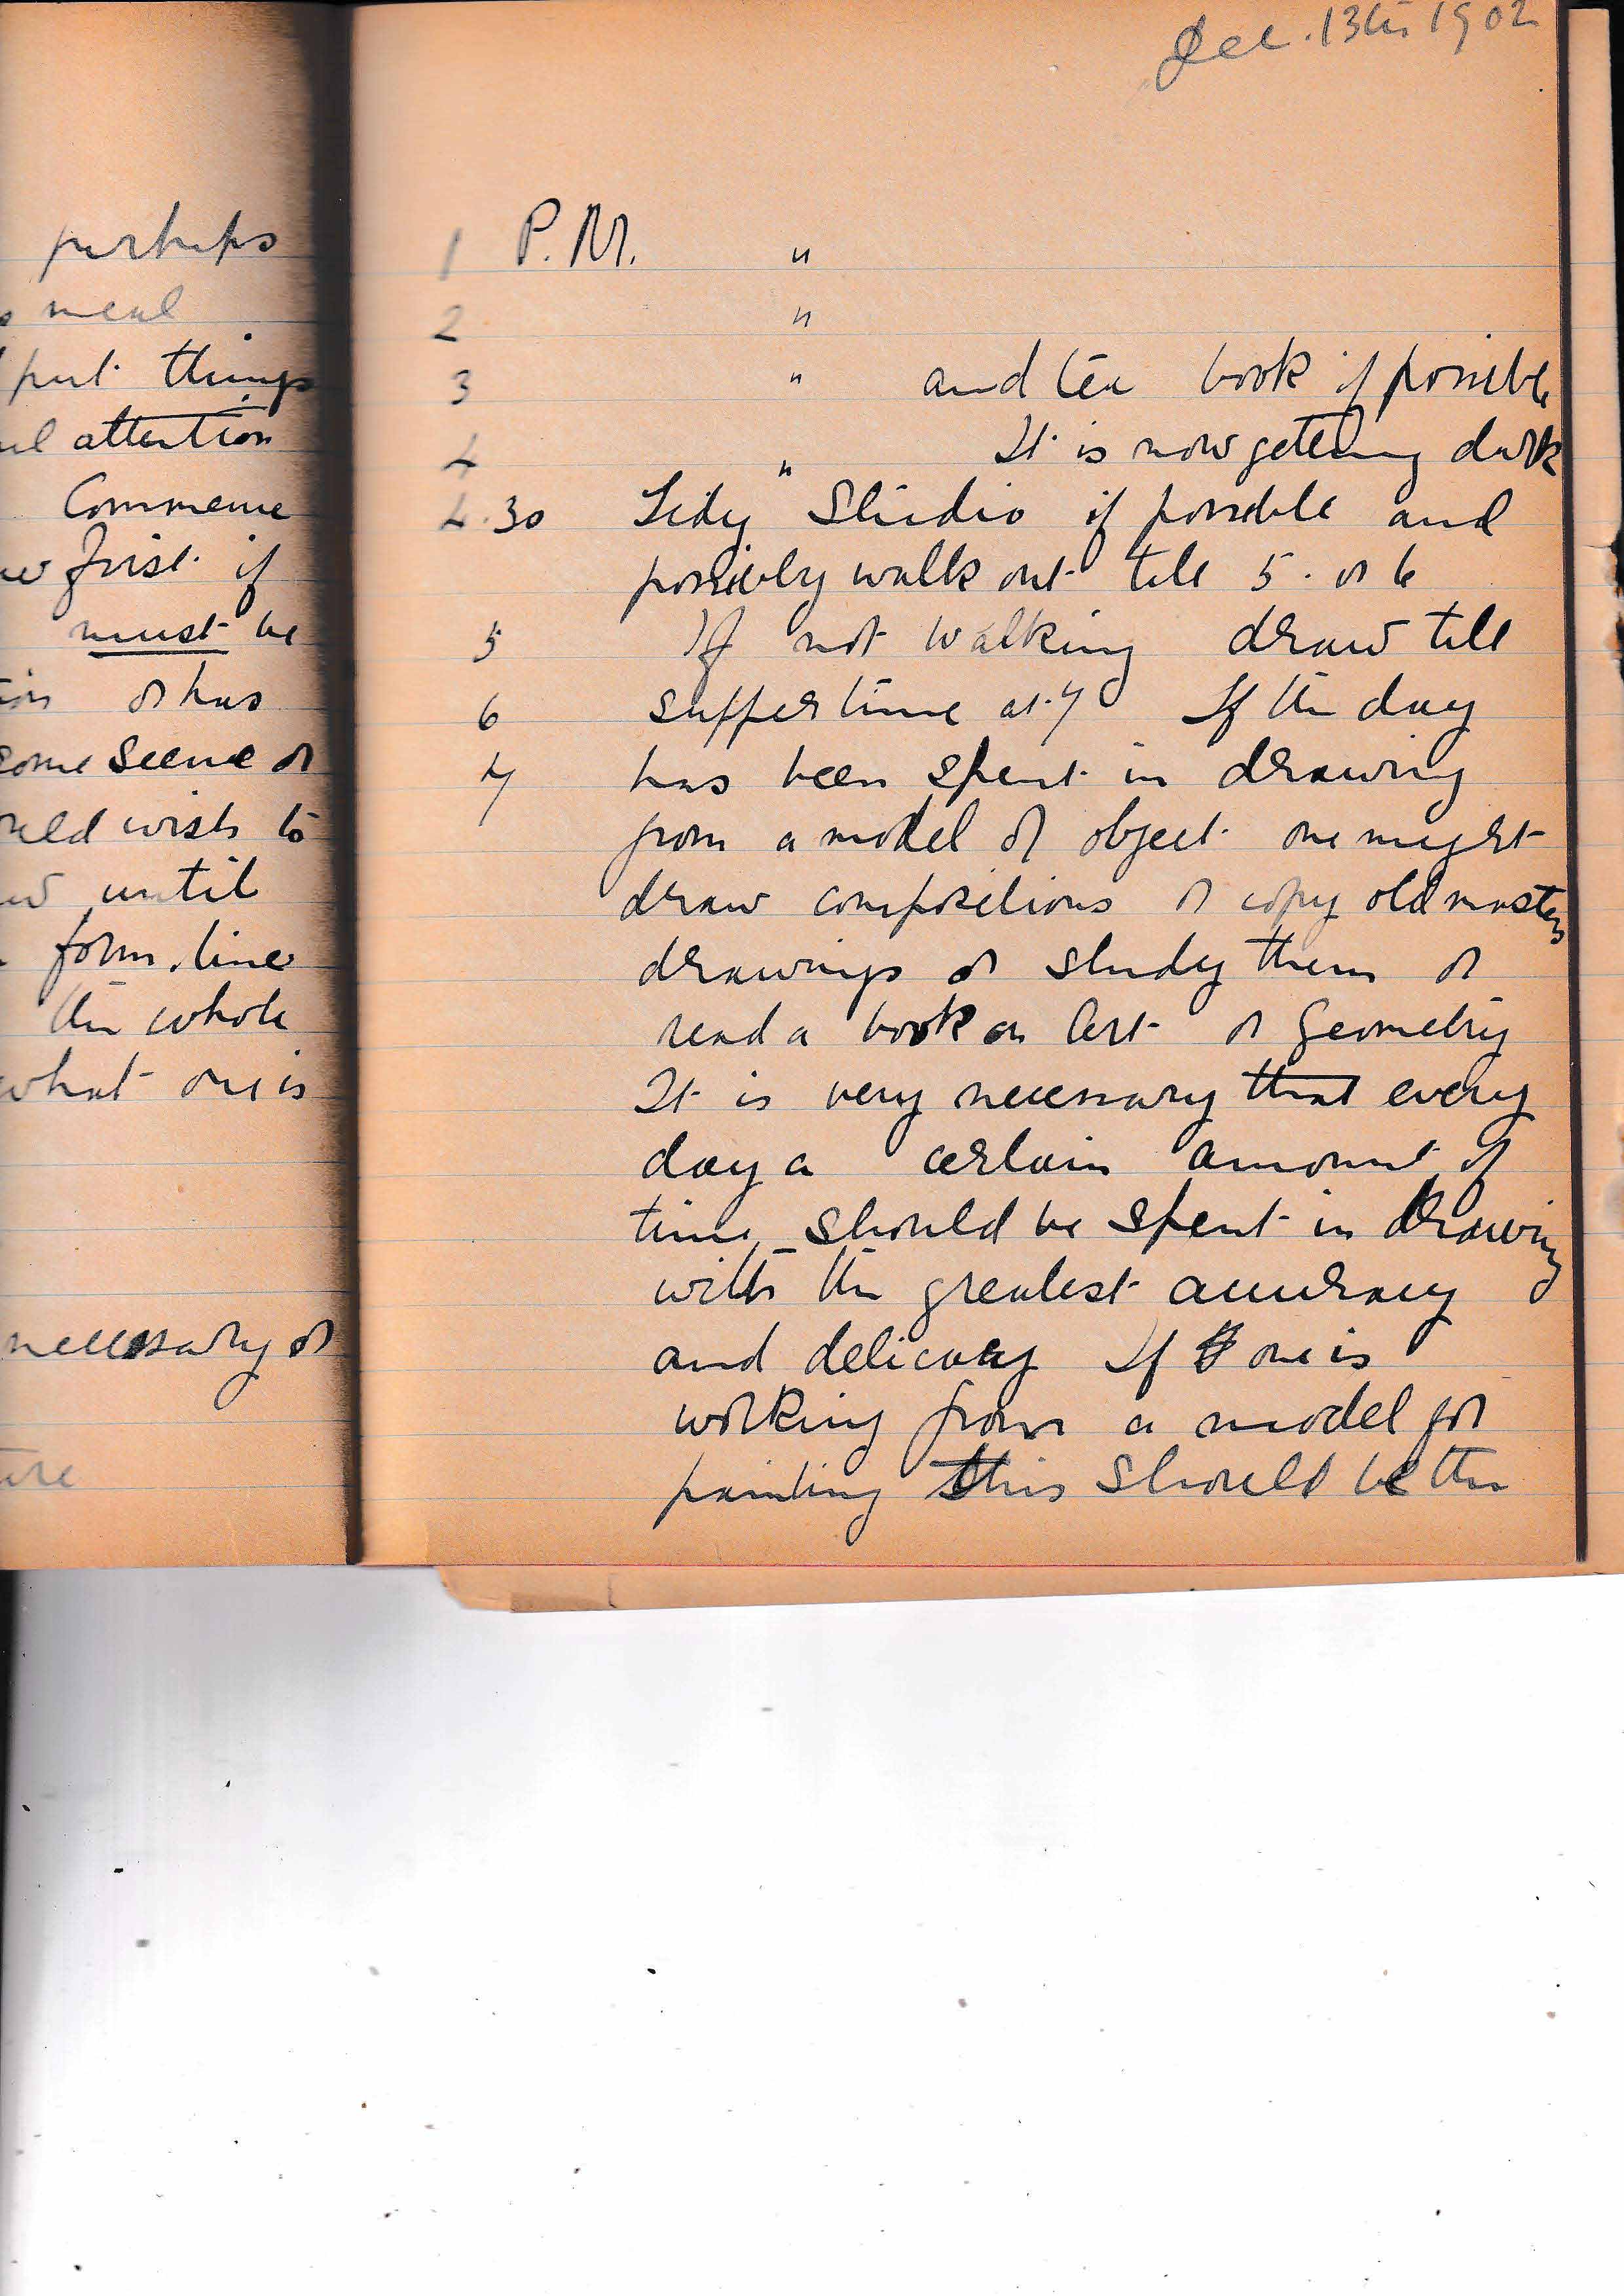 perhaps
meal
put things
attention
Commence
first if
must be
or has
some scene or
wish to
until
form. line
the whole
what one is
necessary or
Dec. 13th 1902
1 P.M. "
2 "
3 " and tea book if possible
4 " It is now getting dark
4.30 Tidy Studio if possible and
possibly walk out till 5. or 6
5 If not walking draw till
6 supper time at 7 If the day
7 has been spent in drawing
from a model or object one might
draw compositions or copy old masters
drawings or study them or
read a book on Art or Geometry
It is very necessary that every
day a certain amount of
time should be spent in drawing
with the greatest accuracy
and delicacy If one is
working from a model for
painting this should be the